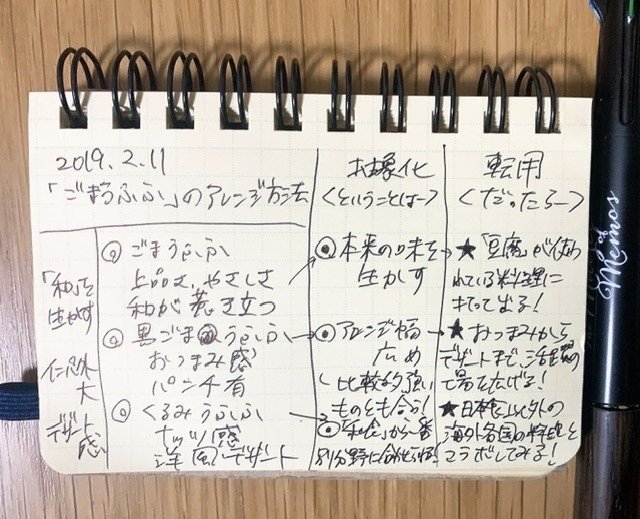 2019.2.11
「ごまうふふ」のアレンジ方法
抽象化
<ということは→>
転用
<だったら→>
「和」を
生かす
意外
大
デザート
感
◎ ごまうふふ
上品さ、やさしさ
和が引き立つ
◎ 黒ごまうふふ
おつまみ感
パンチ有
◎ くるみうふふ
ナッツ感
洋風デザート
◎ 本来の味を
生かす
◎ アレンジ幅
広め
比較的強い
ものとも合う!
◎ 「和食」から一番
別分野に
★ 「豆腐」が使わ
れている料理に
打って出る!
★ おつまみから
デザートまで、活躍の
場を広げる!
★ 日本食以外の
海外各国の料理と
コラボしてみる!
of
Memos